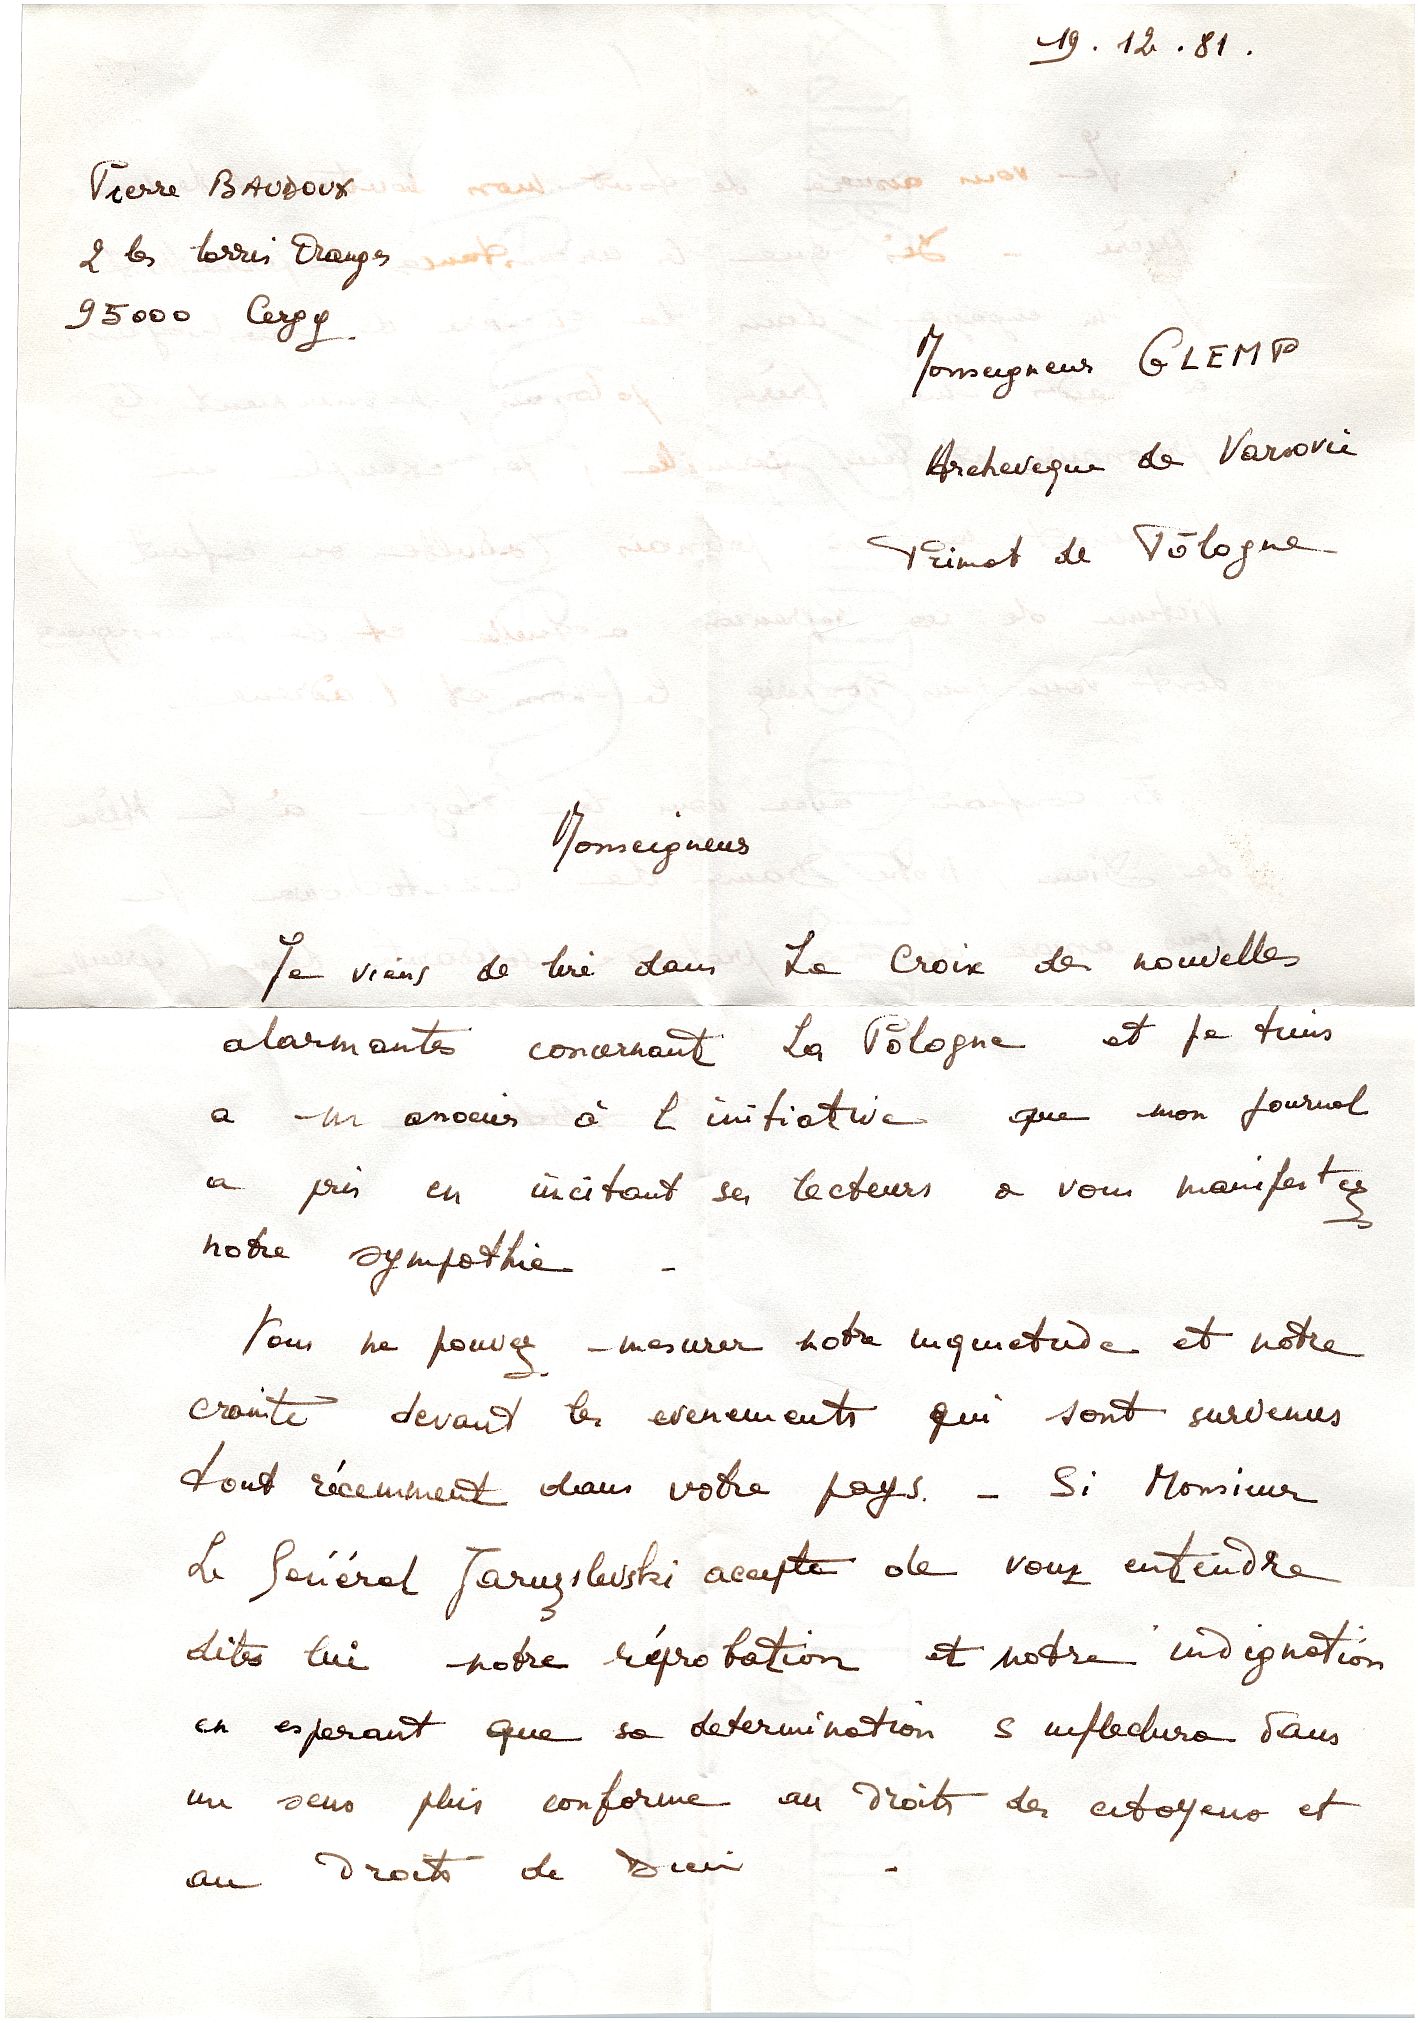 19.12.81.
Pierre BAUDOUX
2 les terris Oranges
95000 Cergy.
Monseigneur GLEMP
Archeveque de Varsovie
Primat de Pologne
Monseigneur
Je viens de lire dans La Croix des nouvelles
alarmantes concernant La Pologne et je tiens
a m associer à l initiative que mon journal
a pris en incitant ses lecteurs a vous manifester
notre sympathie -
Vous ne pouvez mesurer notre inquietude et notre
crainte devant les evenements qui sont survenus
tout récemment dans votre pays. - Si Monsieur
Le Général Jaruzslewski accepte de vous entendre
dites lui notre réprobation et notre indignation
en esperant que sa determination s inflechira dans
un sens plus conforme au droits des citoyens et
au droits de Dieu -